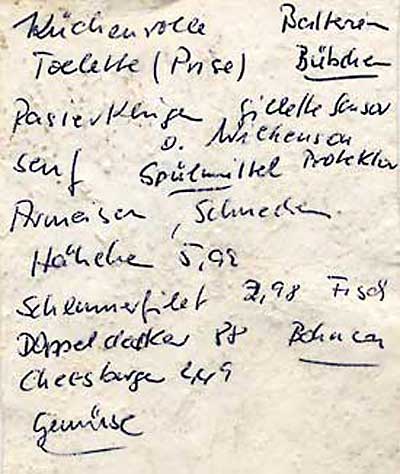 Küchenrolle Batterien
Toilette (Prise) Bübchen
Rasierklingen Gillette Sensor
o. Wilkenson Protektor
Senf Spülmittel
Ameisen, Schnecken
Hähnchen 5,99
Schlemmerfilet 2,98 Fisch
Doppeldecker 88 Bohnen
Cheesburger 2,49
Gemüse